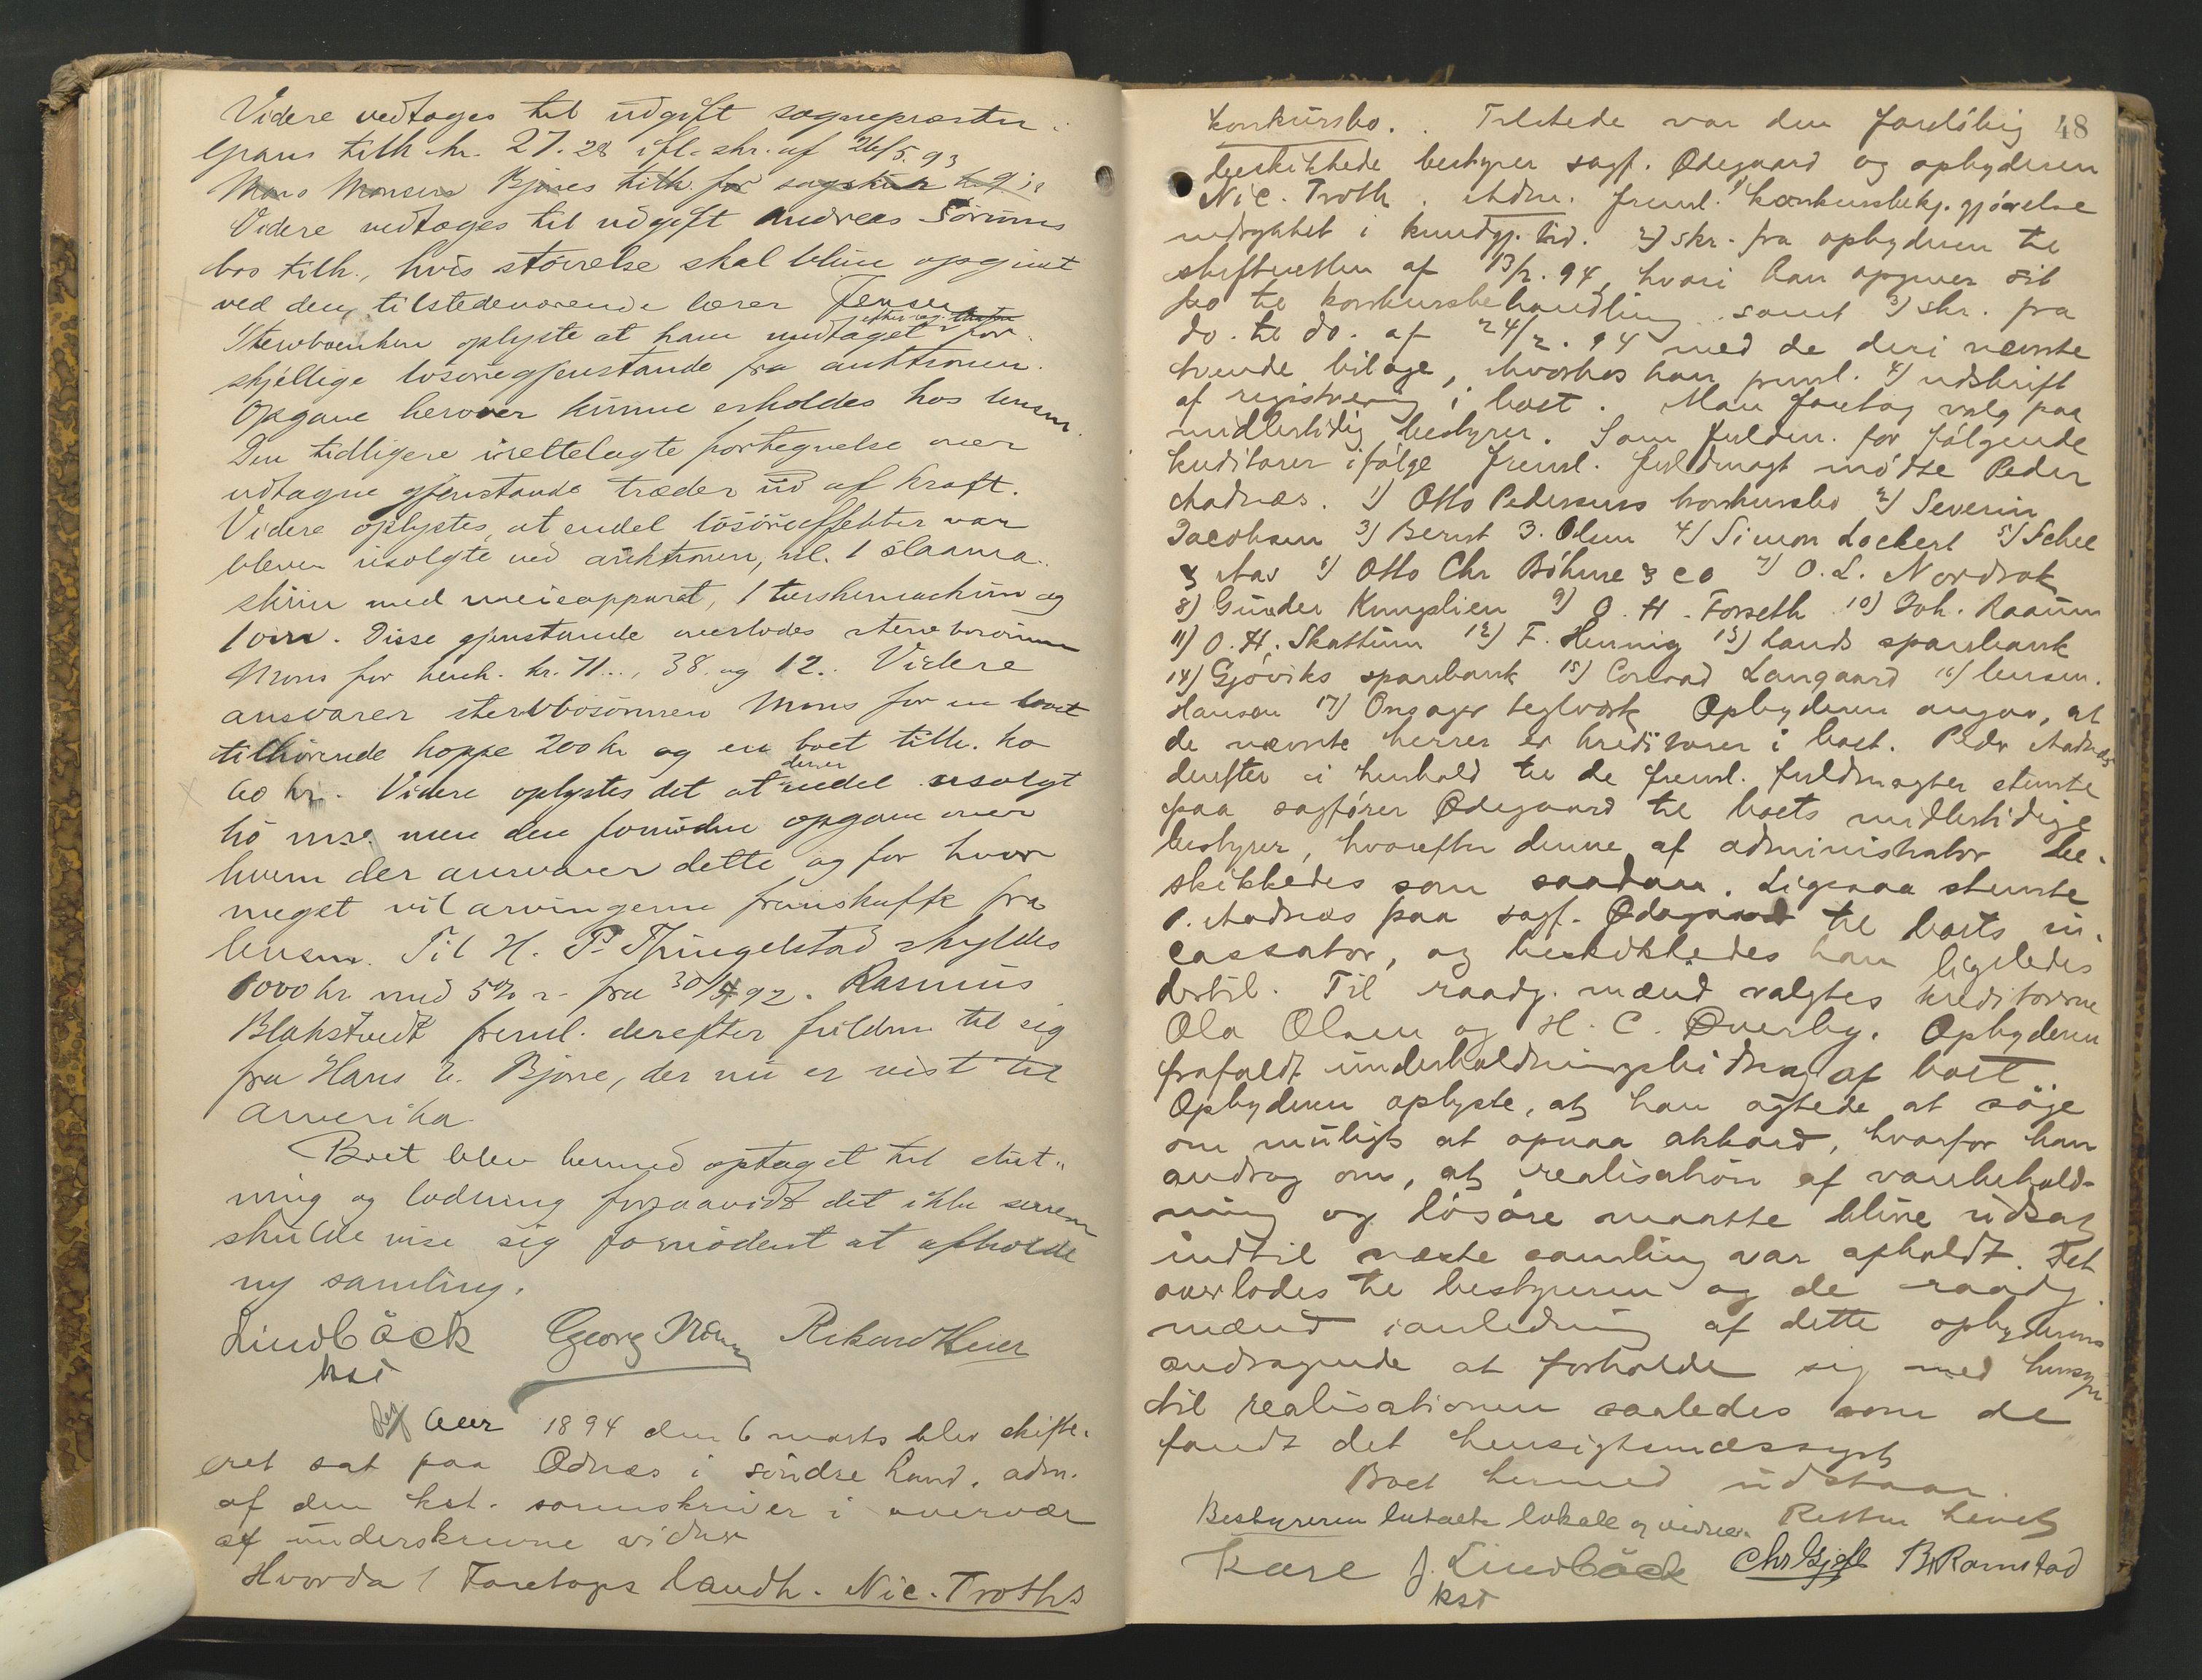 Videre vedtoges til udgift sognepræsten
Grans tilh. kr. 27.28 ifl. skr. af 26/5.93
Mons Monsens Bjønes tilh. for
Videre vedtoges til udgift Andreas Sørums
bos tilh., hvis størrelse skal blive opgivet
ved den tilstedeværende lærer Jensen
Sterboenken oplyste at have modtaget efter reg. for
skjellige løsøregjenstande fra auktionen.
Opgave herover kunne erholdes hos lensm.
Den tidligere irettelagte fortegnelse over
udtagne gjenstande træder ud af kraft.
Videre oplystes, at endel løsøreeffekter var
bleven usolgte ved auktionen, nl. 1 slaama-
skine med meieapparat, 1 tærskemaskine og
1 ovn. Disse gjenstande overlodes sterbosønnen
Mons for henh. kr. 71..., 38. og 12. Videre
ansvarer sterbbosønnen Mons for en boet
tilhørende hoppe 200 kr og en boet tilh. ko
60 kr. Videre oplystes det at der er endel usolgt
hø m.v. men den fornødne opgave over
hvem der ansvarer dette og for hvor
meget vil arvingerne fremskaffe fra
lensm. Til H. P. Thingelstad skyldes
1000 kr med 5% r. fra 30/4 92. Rasmus
Blakstvedt freml. derefter fuldm. til sig
fra Hans E. Bjøne, der nu er reist til
Amerika.
Boet blev hermed optaget til slut-
ning og lodning forsaavidt det ikke senere
skulde vise sig fornødent at afholde
ny samling.
Lindbäck Georg Rikard Heier
kst
Aar 1894 den 6 marts blev skifte-
ret sat paa Odnæs i søndre Land, adm.
af den kst. sorenskriver i overvær
af underskrevne vidner
Hvorda 1 Foretoges landh. Nic. Troths
48
konkursbo. Tilstede var den foreløbig
beskikkede bestyrer sagf. Ødegaard og opbyderen
Nic. Troth. Adm. freml. 1) konkursbekj.gjørelse
indrykket i kundgj. tid. 2) skr. fra opbyderen til
skifteretten af 13/2. 94, hvori han opgiver sit
bo til konkursbehandling samt 3) skr. fra
do. til do. af 24/2. 94 med de deri nævnte
tvende bilage, hvorhos han freml. 4) udskrift
af registrering i boet. Man foretog valg paa
midlertidig bestyrer. Som fuldm. for følgende
kreditorer ifølge freml. fuldmagt mødte Peder
Aadnæs. 1) Otto Pedersens konkursbo 2) Severin
Jacobsen 3) Bernt J. Olsen 4) Simon Lockert 5) Schee
& Aas 6) Otto Chr Böhme & co 7) O. L. Nordrak
8) Gunder Kungslien 9) O. H. Forseth 10) Joh. Raaum
11) O. H. Skattum 12) F. Hennig 13) Lands sparebank
14) Gjøviks sparebank 15) Conrad Langaard 16) lensm.
Hansen 17) Onsager teglværk Opbyderen angav, at
de nævnte herrer er kreditorer i boet. Peder Aadnæs
derefter i henhold til de freml. fuldmagter stemte
paa sagfører Ødegaard til boets midlertidige
bestyrer, hvorefter denne af administrator be-
skikkedes som saadan. Ligesaa stemte
P. Aadnæs paa sagf. Ødegaard til boets in-
cassator, og beskikkedes han ligeledes
dertil. Til raadg. mænd valgtes kreditorerne
Ola Olsen og H. C. Øverby. Opbyderen
frafaldt underholdningsbidrag af boet.
Opbyderen oplyste, at han agtede at søge
om muligt at opnaa akkord, hvorfor han
androg om, at realisation af varebehold-
ning og løsøre maatte blive udsat
indtil næste samling var afholdt. Det
overlodes til bestyreren og de raadg.
mænd i anledning af dette opbyderens
andragende at forholde sig med hensyn
til realisationen saaledes som de
fandt det hensigtsmæssigt
Boet hermed udstaar.
Bestyreren betalte lokale og vidner. Retten hævet
Kare J. Lindbäck Chr Gjefle B. Ramstad
kst